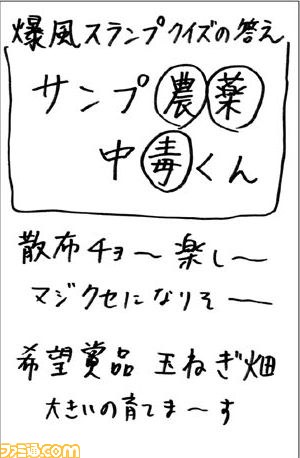 爆風スランプクイズの答え
サンプ農薬
中毒くん
散布チョ〜楽し〜
マジクセになりそ〜
希望賞品 玉ねぎ畑
大きいの育てま〜す
ファミ通.com